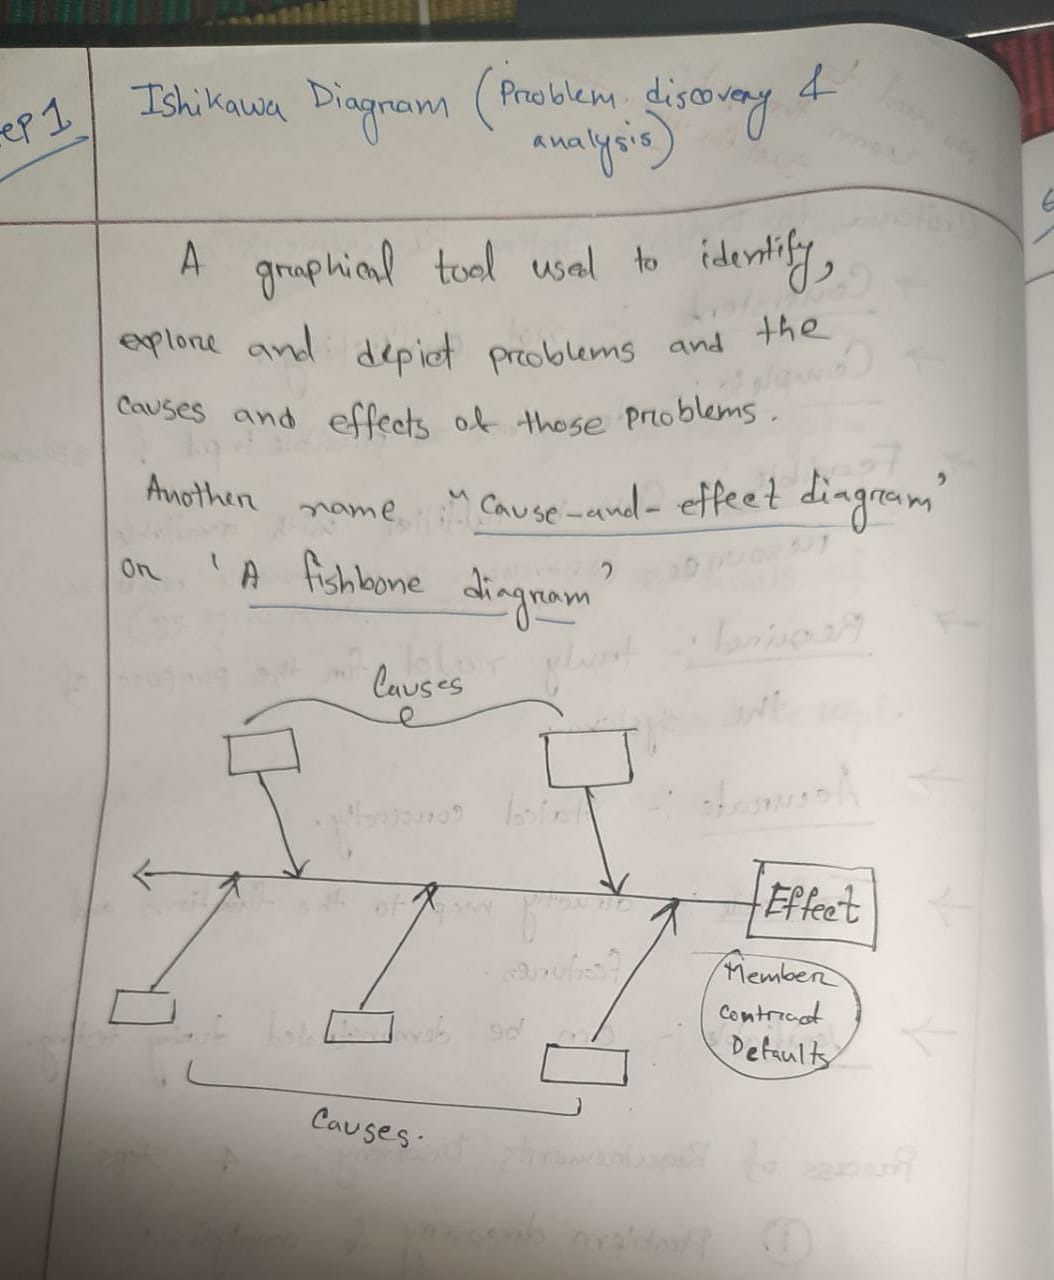 ep 1
Ishikawa Diagram (Problem discovery &
analysis)
A graphical tool used to identify,
explore and depict problems and the
causes and effects of those problems.
Another name "Cause-and-effect diagram'
or 'A fishbone diagram'
Causes
Effect
Member
contract
Defaults
Causes.